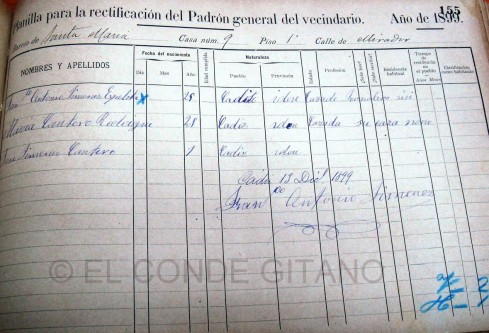 155
Plantilla para la rectificación del Padrón general del vecindario. Año de 1899.
Barrio de Santa María Casa núm. 9 Piso 1º Calle de Mirador
NOMBRES Y APELLIDOS Fecha del nacimiento Día Mes Año Edad cumplida Naturaleza Pueblo Provincia Estado Profesión Residencia habitual Tiempo de residencia en el pueblo Años Meses Clasificación como habitante
Antonio Jimenez 25 Cadiz idem Casado
Maria Cantero Rodriguez 28 Cadiz idem Casada su casa
Jimenez Cantero 1 Cadiz idem
Cadiz 13 Dic. 1899
Franco Antonio Jimenez
© EL CONDE GITANO
V- 2
H-